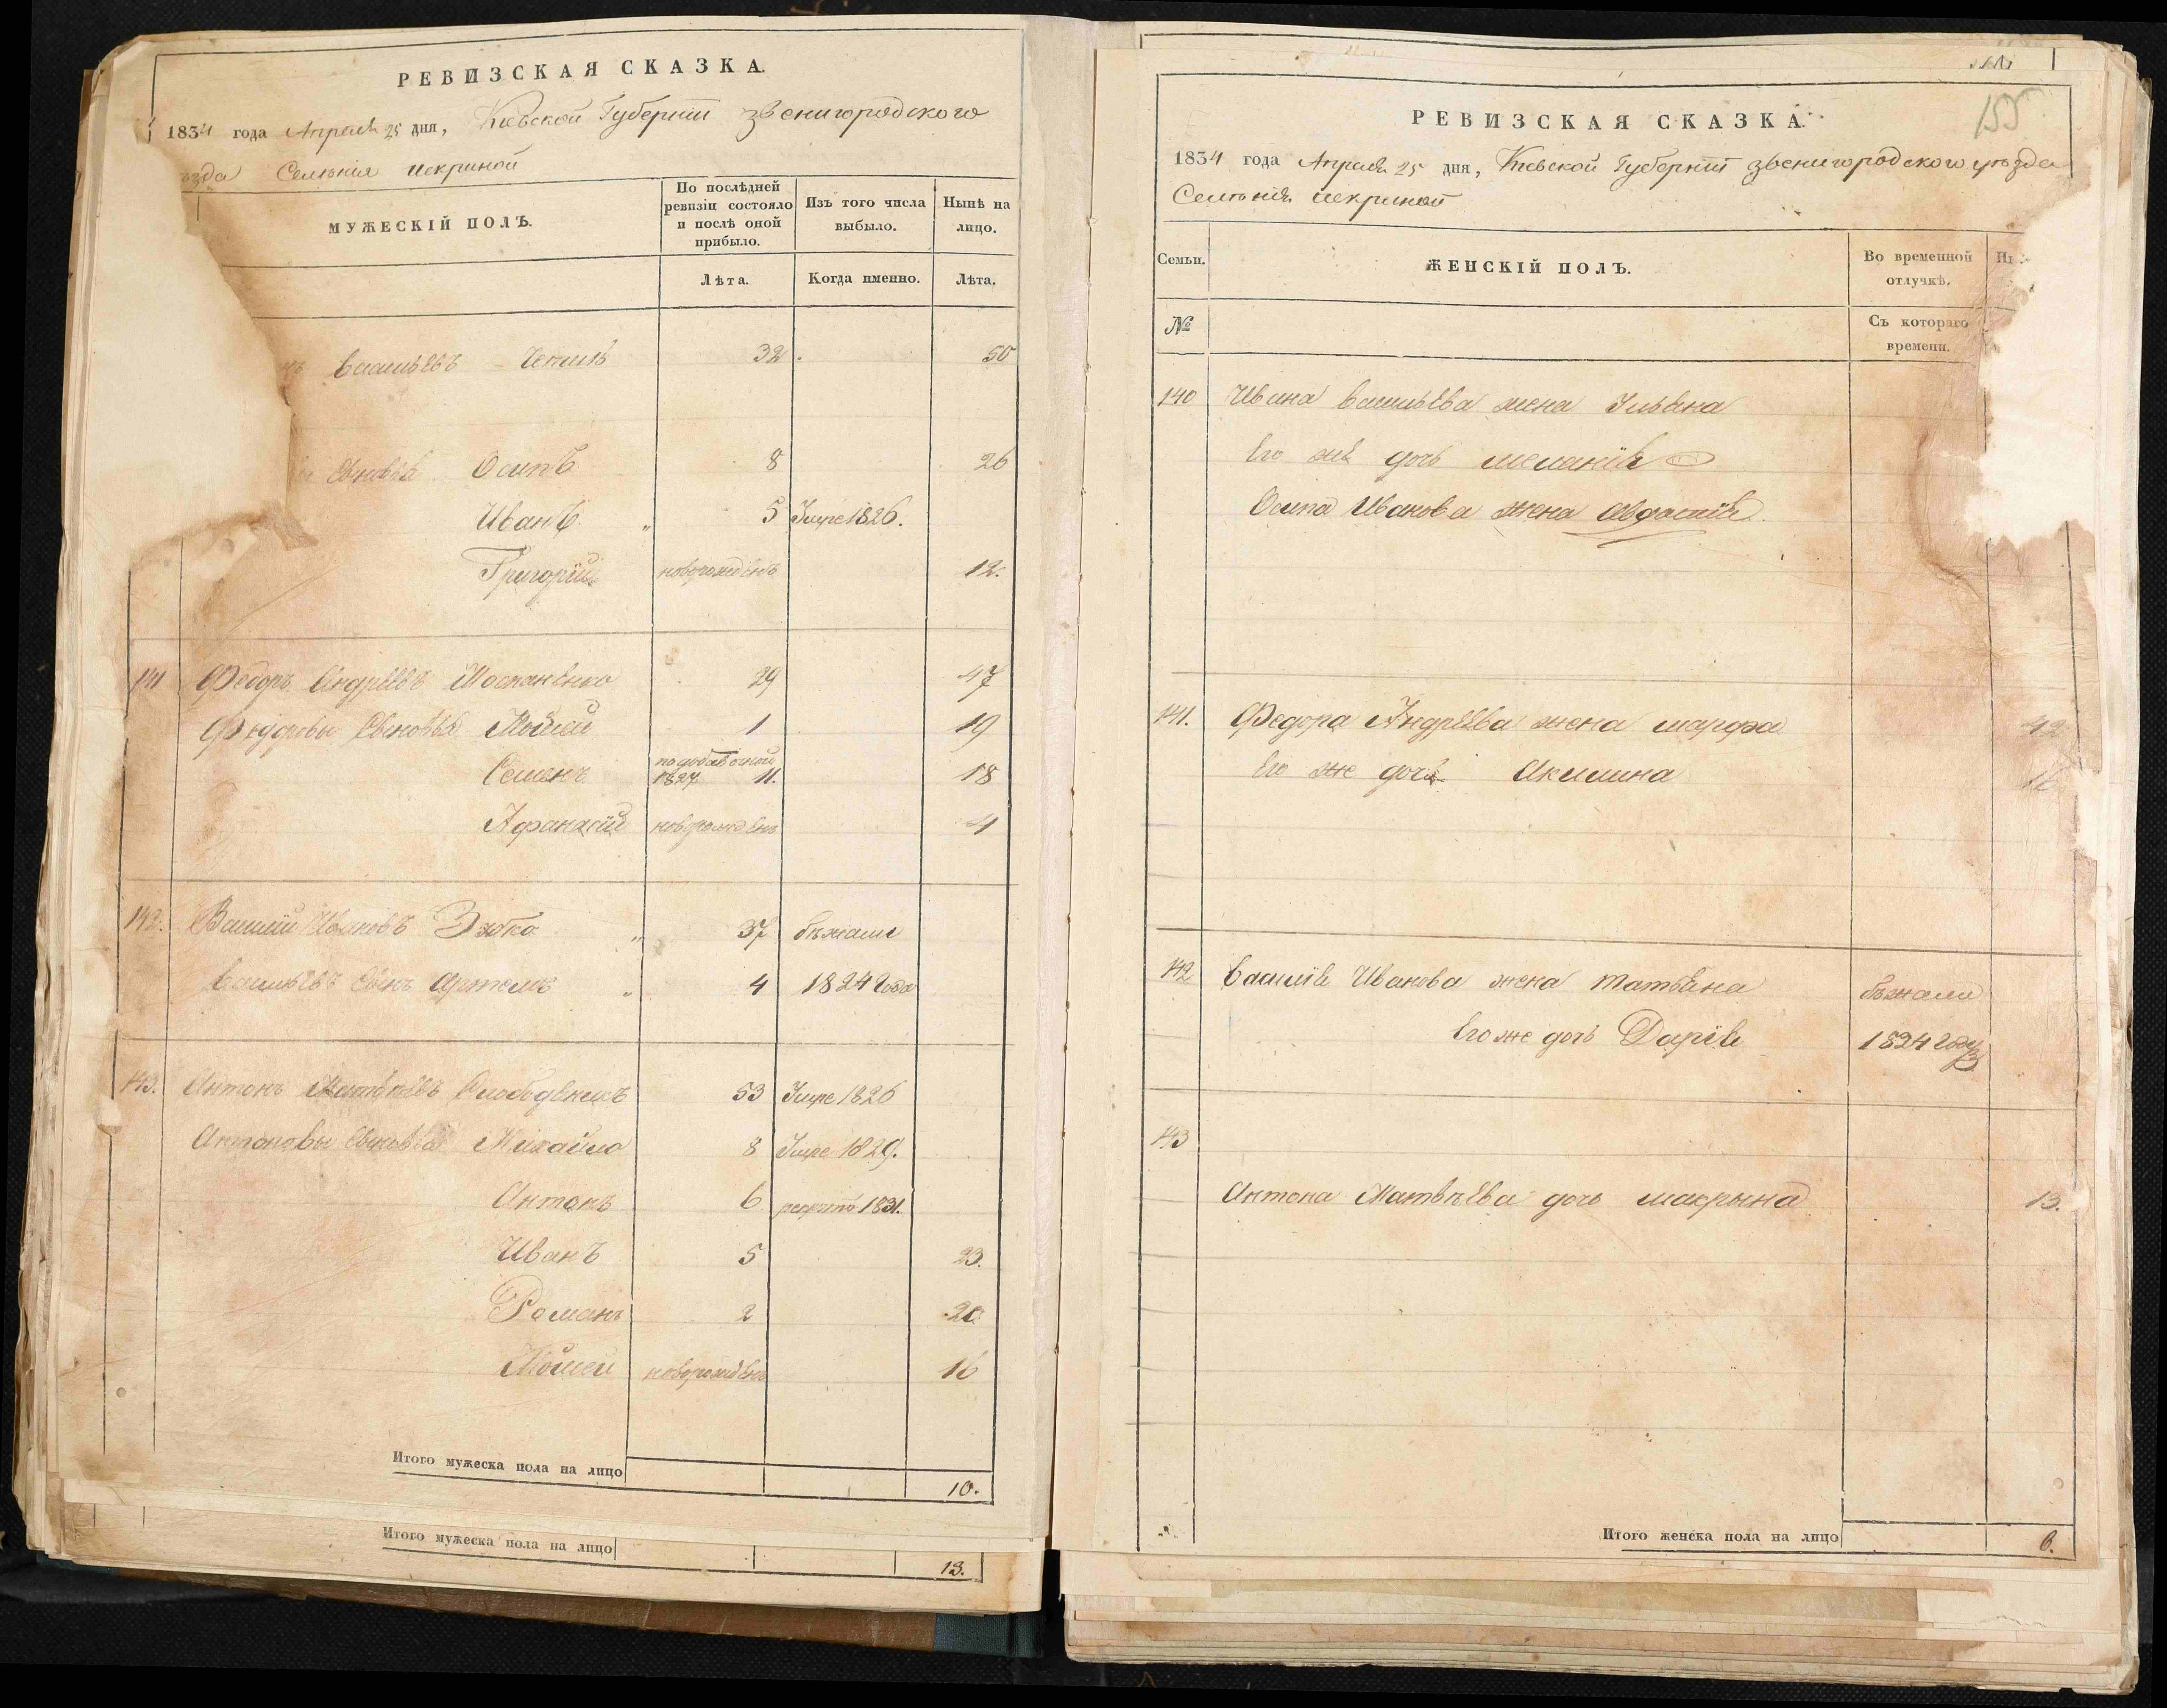 РЕВИЗСКАЯ СКАЗКА.
1834 года Апреля 25 дня, Киевской Губернии звенигородского
ѣзда Селенія искриной
МУЖЕСКІЙ ПОЛЪ.
По послѣдней ревизіи состояло и послѣ оной прибыло.
Изъ того числа выбыло.
Нынѣ на лицо.
Лѣта.
Когда именно.
Лѣта.
васильевъ 32 50
Осипъ 8 26
Иванъ 5 Умре 1826.
Григорій новорожденъ 12.
141 Федоръ Андреевъ 29 47
Федоровы сыновья Мойсей 1 19
Семенъ 1827 11. 18
Афанасій новорожденъ 4
142. Василий Ивановъ 37 бѣжали
васильевъ сынъ Артемъ 4 1824 года
143. Антонъ Матвѣевъ 53 Умре 1826
Антоновы сыновья Михайло 8 Умре 1829.
Антонъ 6 1831.
Иванъ 5 23.
Романъ 2 20
Мойсей новорожденъ 16
Итого мужеска пола на лицо 10.
Итого мужеска пола на лицо 13.
155
РЕВИЗСКАЯ СКАЗКА.
1834 года Апреля 25 дня, Киевской Губернии звенигородского уезда
Селенія искриной
Семьи.
ЖЕНСКІЙ ПОЛЪ.
Во временной отлучкѣ.
№
Съ котораго времени.
140 Ивана васильева жена Ульяна
Его же дочь меланія
Осипа Иванова жена
141. Федора Андреева жена марфа 42
Его же дочь Акилина 16
142 василія Иванова жена татьяна бѣжали
Его же дочь Дарія 1824 году
143
Антона Матвѣева дочь макрына 13.
Итого женска пола на лицо 6.